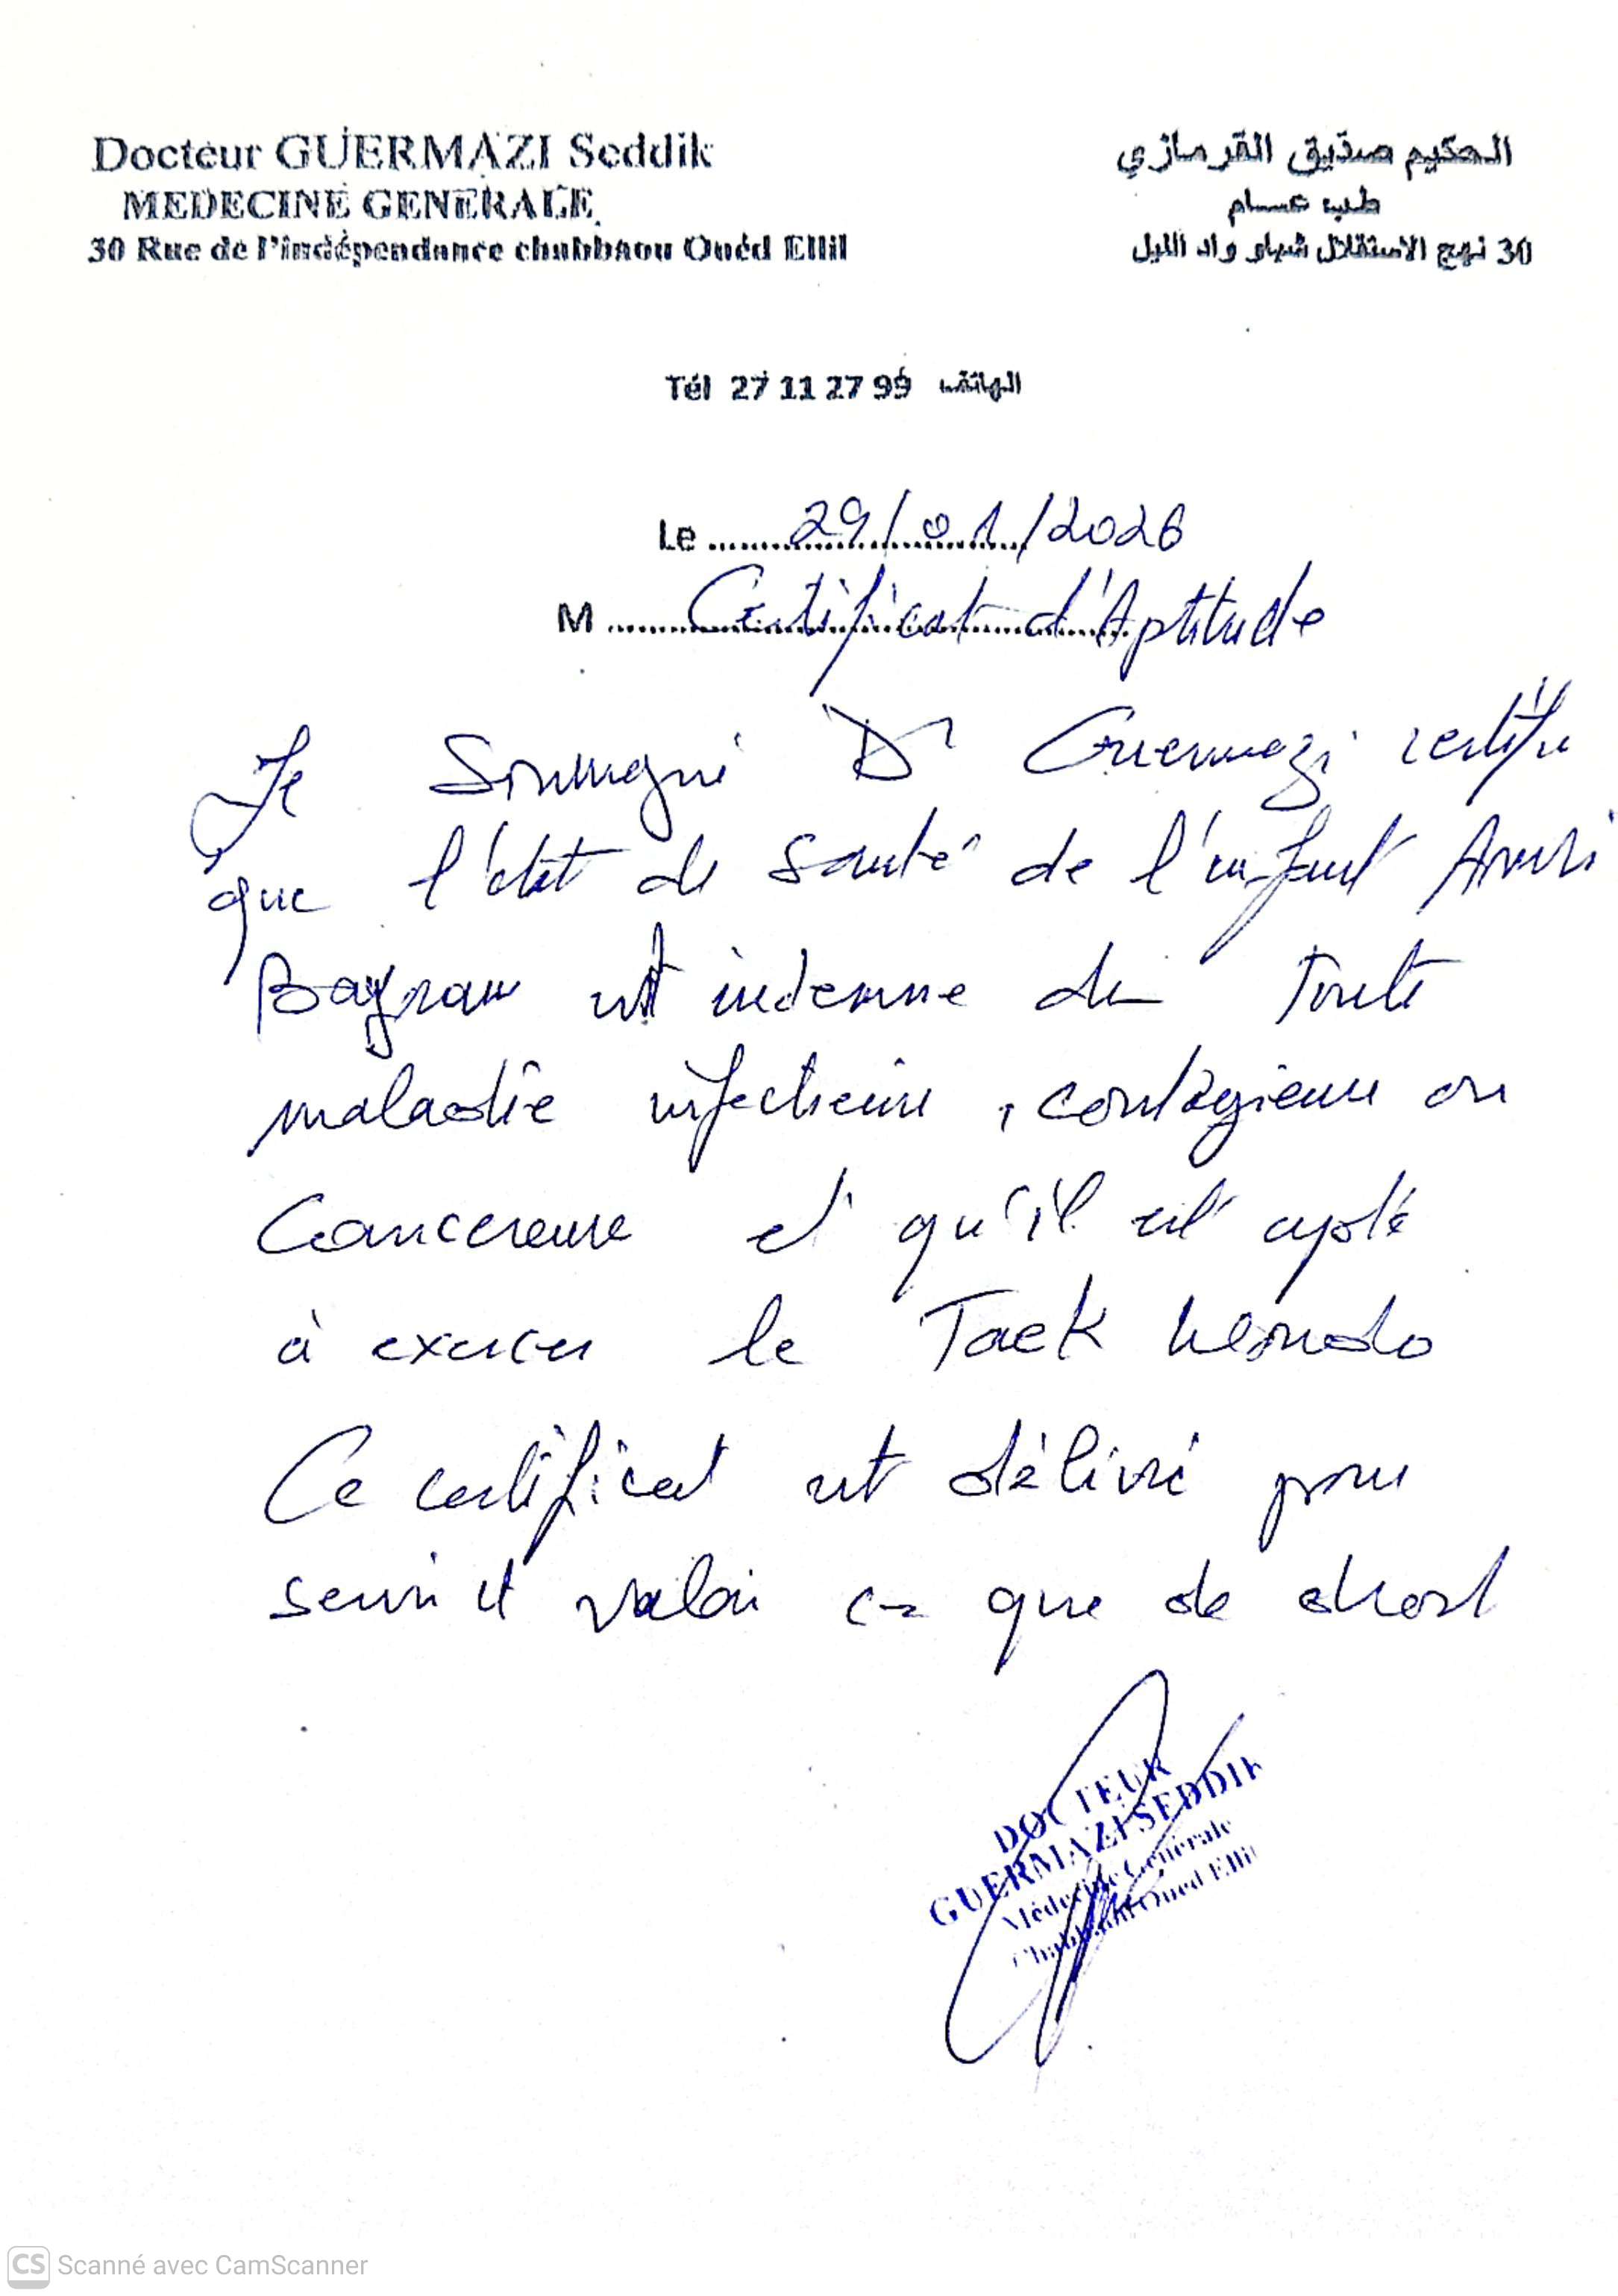 Docteur GUERMAZI Seddik
MEDECINE GENERALE
30 Rue de l'indépendance chabbaou Ouéd Ellil
الحكيم صديق القرمازي
طب عام
30 نهج الاستقلال شباو واد الليل
Tél 27 11 27 99 الهاتف
Le 29/01/2026
M Certificat d'Aptitude
Je Soussigné Dr Guermazi certifie
que l'état de santé de l'enfant Amri
Bayram est indemne de toute
maladie infectieuse, contagieuse ou
Cancereuse et qu'il est apte
à exercer le Taek wondo
Ce certificat est délivré pour
servir et valoir ce que de droit
DOCTEUR
GUERMAZI SEDDIK
Médecine Générale
Chabbaou Oued Ellil
CS Scanné avec CamScanner